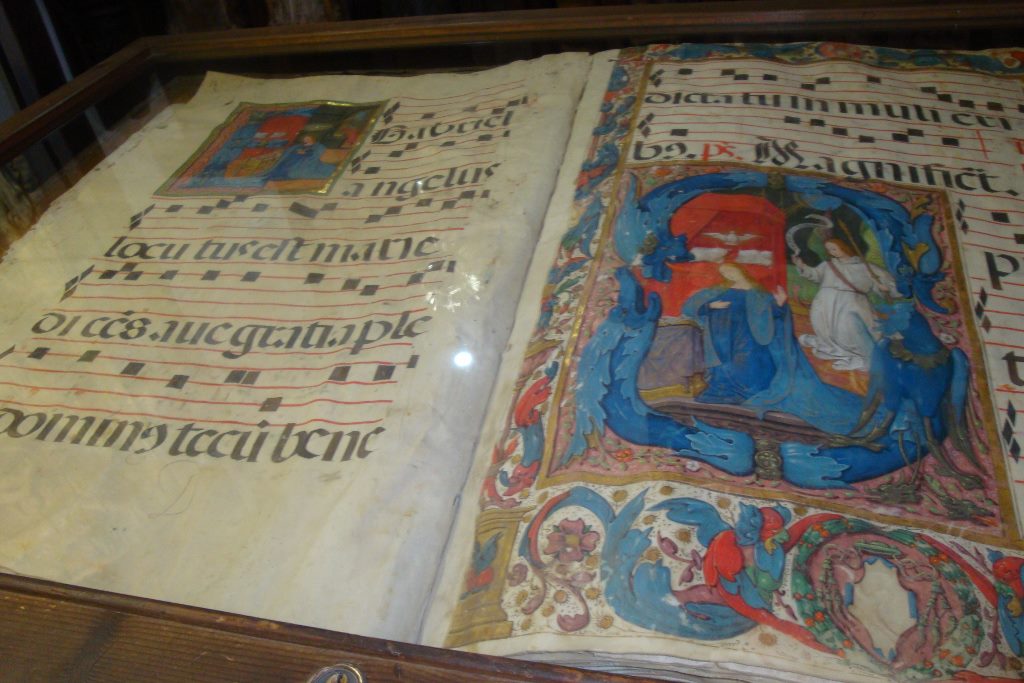 Gabriel
angelus
locu tus est marie
di cēs. aue gratia ple
domin9 tecū bene
dicta tu in muli eri
b9. ps. Magnificāt.